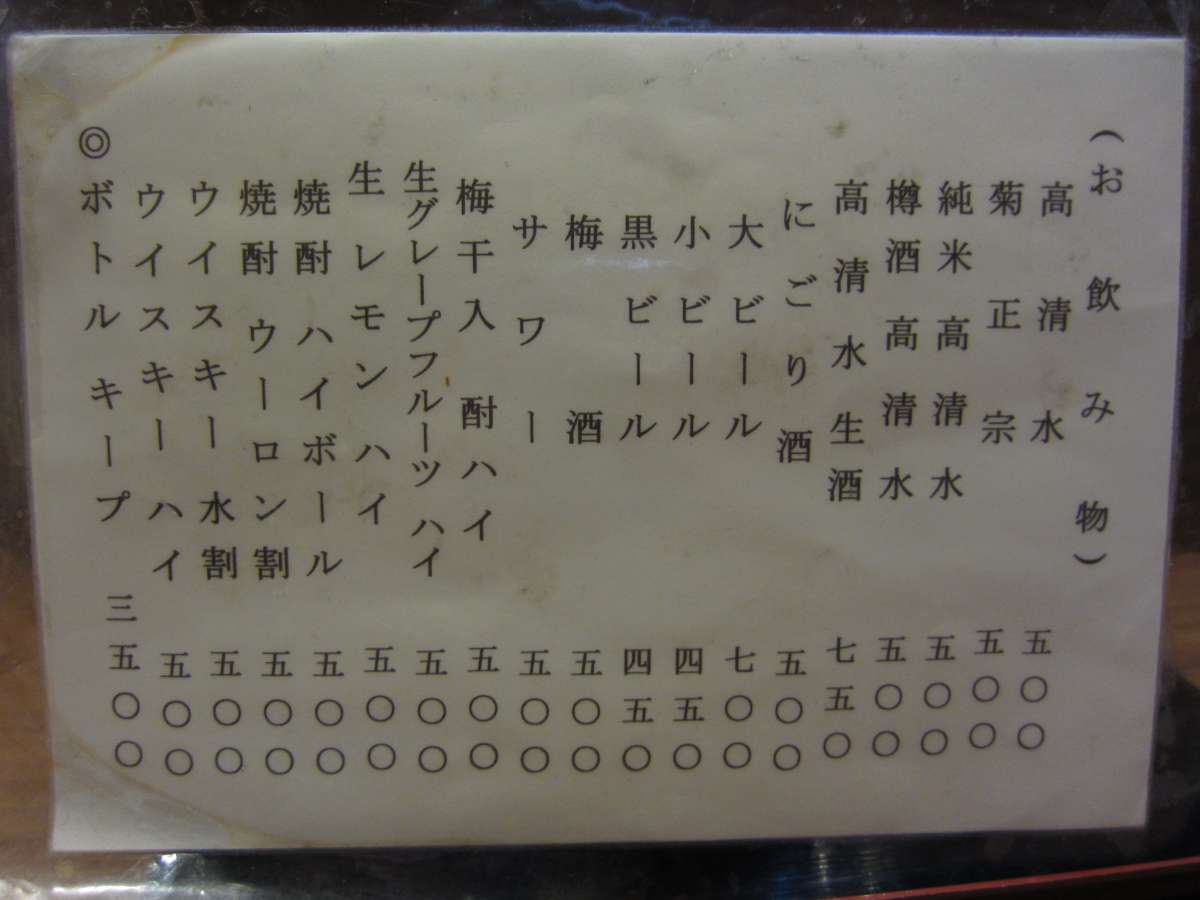 (お飲み物)
高清水 五〇〇
菊正宗 五〇〇
純米高清水 五〇〇
樽酒高清水 五〇〇
高清水生酒 七五〇
にごり酒 五〇〇
大ビール 七〇〇
小ビール 四五〇
黒ビール 四五〇
梅酒 五〇〇
サワー 五〇〇
梅干入 酎ハイ 五〇〇
生グレープフルーツハイ 五〇〇
生レモンハイ 五〇〇
焼酎 ハイボール 五〇〇
焼酎 ウーロン割 五〇〇
ウイスキー 水割 五〇〇
ウイスキー ハイ 五〇〇
◎ボトル キープ 三五〇〇